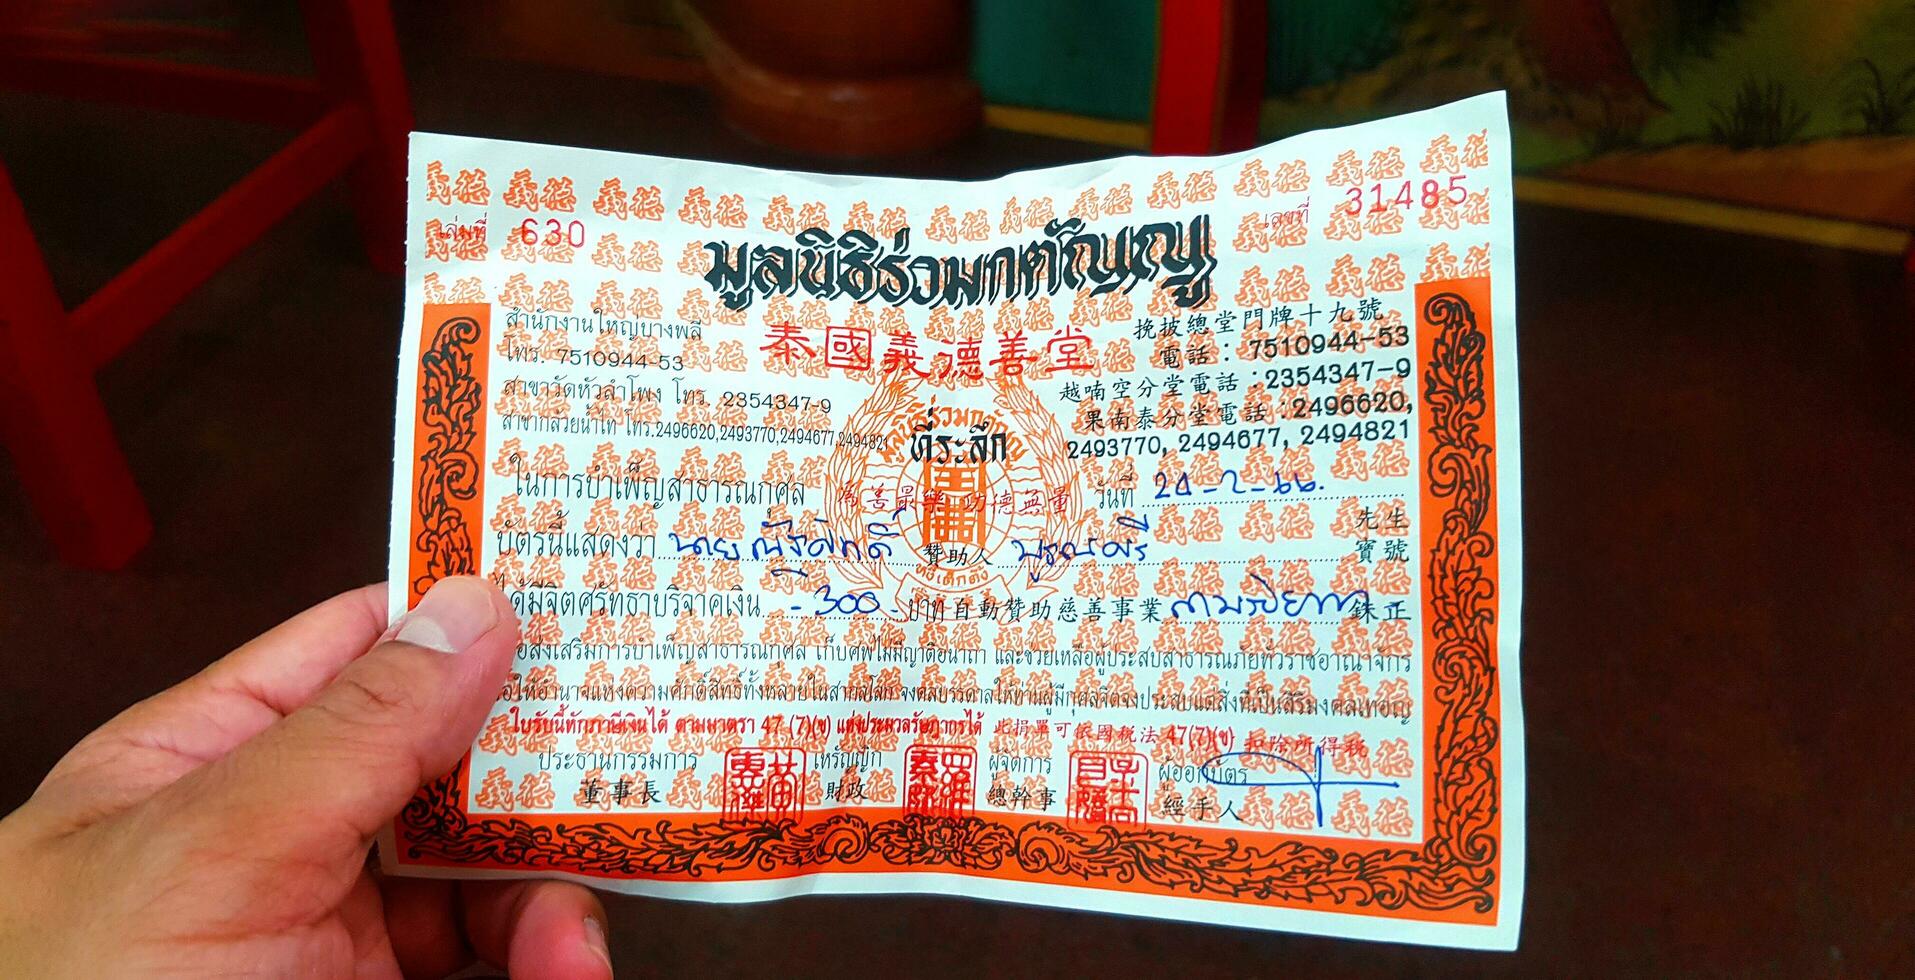 เล่มที่ 630
เลขที่ 31485
มูลนิธิร่วมกตัญญู
泰國義德善堂
สำนักงานใหญ่บางพลี
โทร. 7510944-53
สาขาวัดหัวลำโพง โทร. 2354347-9
สาขากล้วยน้ำไท โทร.2496620,2493770,2494677,2494821
挽披總堂門牌十九號
電話：7510944-53
越喃空分堂電話：2354347-9
果南泰分堂電話：2496620,
2493770, 2494677, 2494821
ที่ระลึก
ในการบำเพ็ญสาธารณกุศล 為善最樂 功德無量 วันที่ 24-2-66.
บัตรนี้แสดงว่า นายณัฐศักดิ์ 贊助人 先生 寶號
ได้มีจิตศรัทธาบริจาคเงิน -300- บาท 自動贊助慈善事業 สามร้อยบาท 銖正
เพื่อส่งเสริมการบำเพ็ญสาธารณกุศล เก็บศพไม่มีญาติอนาถา และช่วยเหลือผู้ประสบสาธารณภัยทั่วราชอาณาจักร
ขอให้อำนาจแห่งความศักดิ์สิทธิ์ทั้งหลายในสากลโลก จงดลบรรดาลให้ท่านผู้มีกุศลจิตจงประสบแต่สิ่งที่เป็นสิริมงคลเทอญ
ใบรับนี้หักภาษีเงินได้ ตามมาตรา 47 (7)(ข) แห่งประมวลรัษฎากรได้ 此捐單可依國稅法 47(7)(ข) 扣除所得稅
ประธานกรรมการ
董事長
เหรัญญิก
財政
ผู้จัดการ
總幹事
ผู้ออกบัตร
經手人